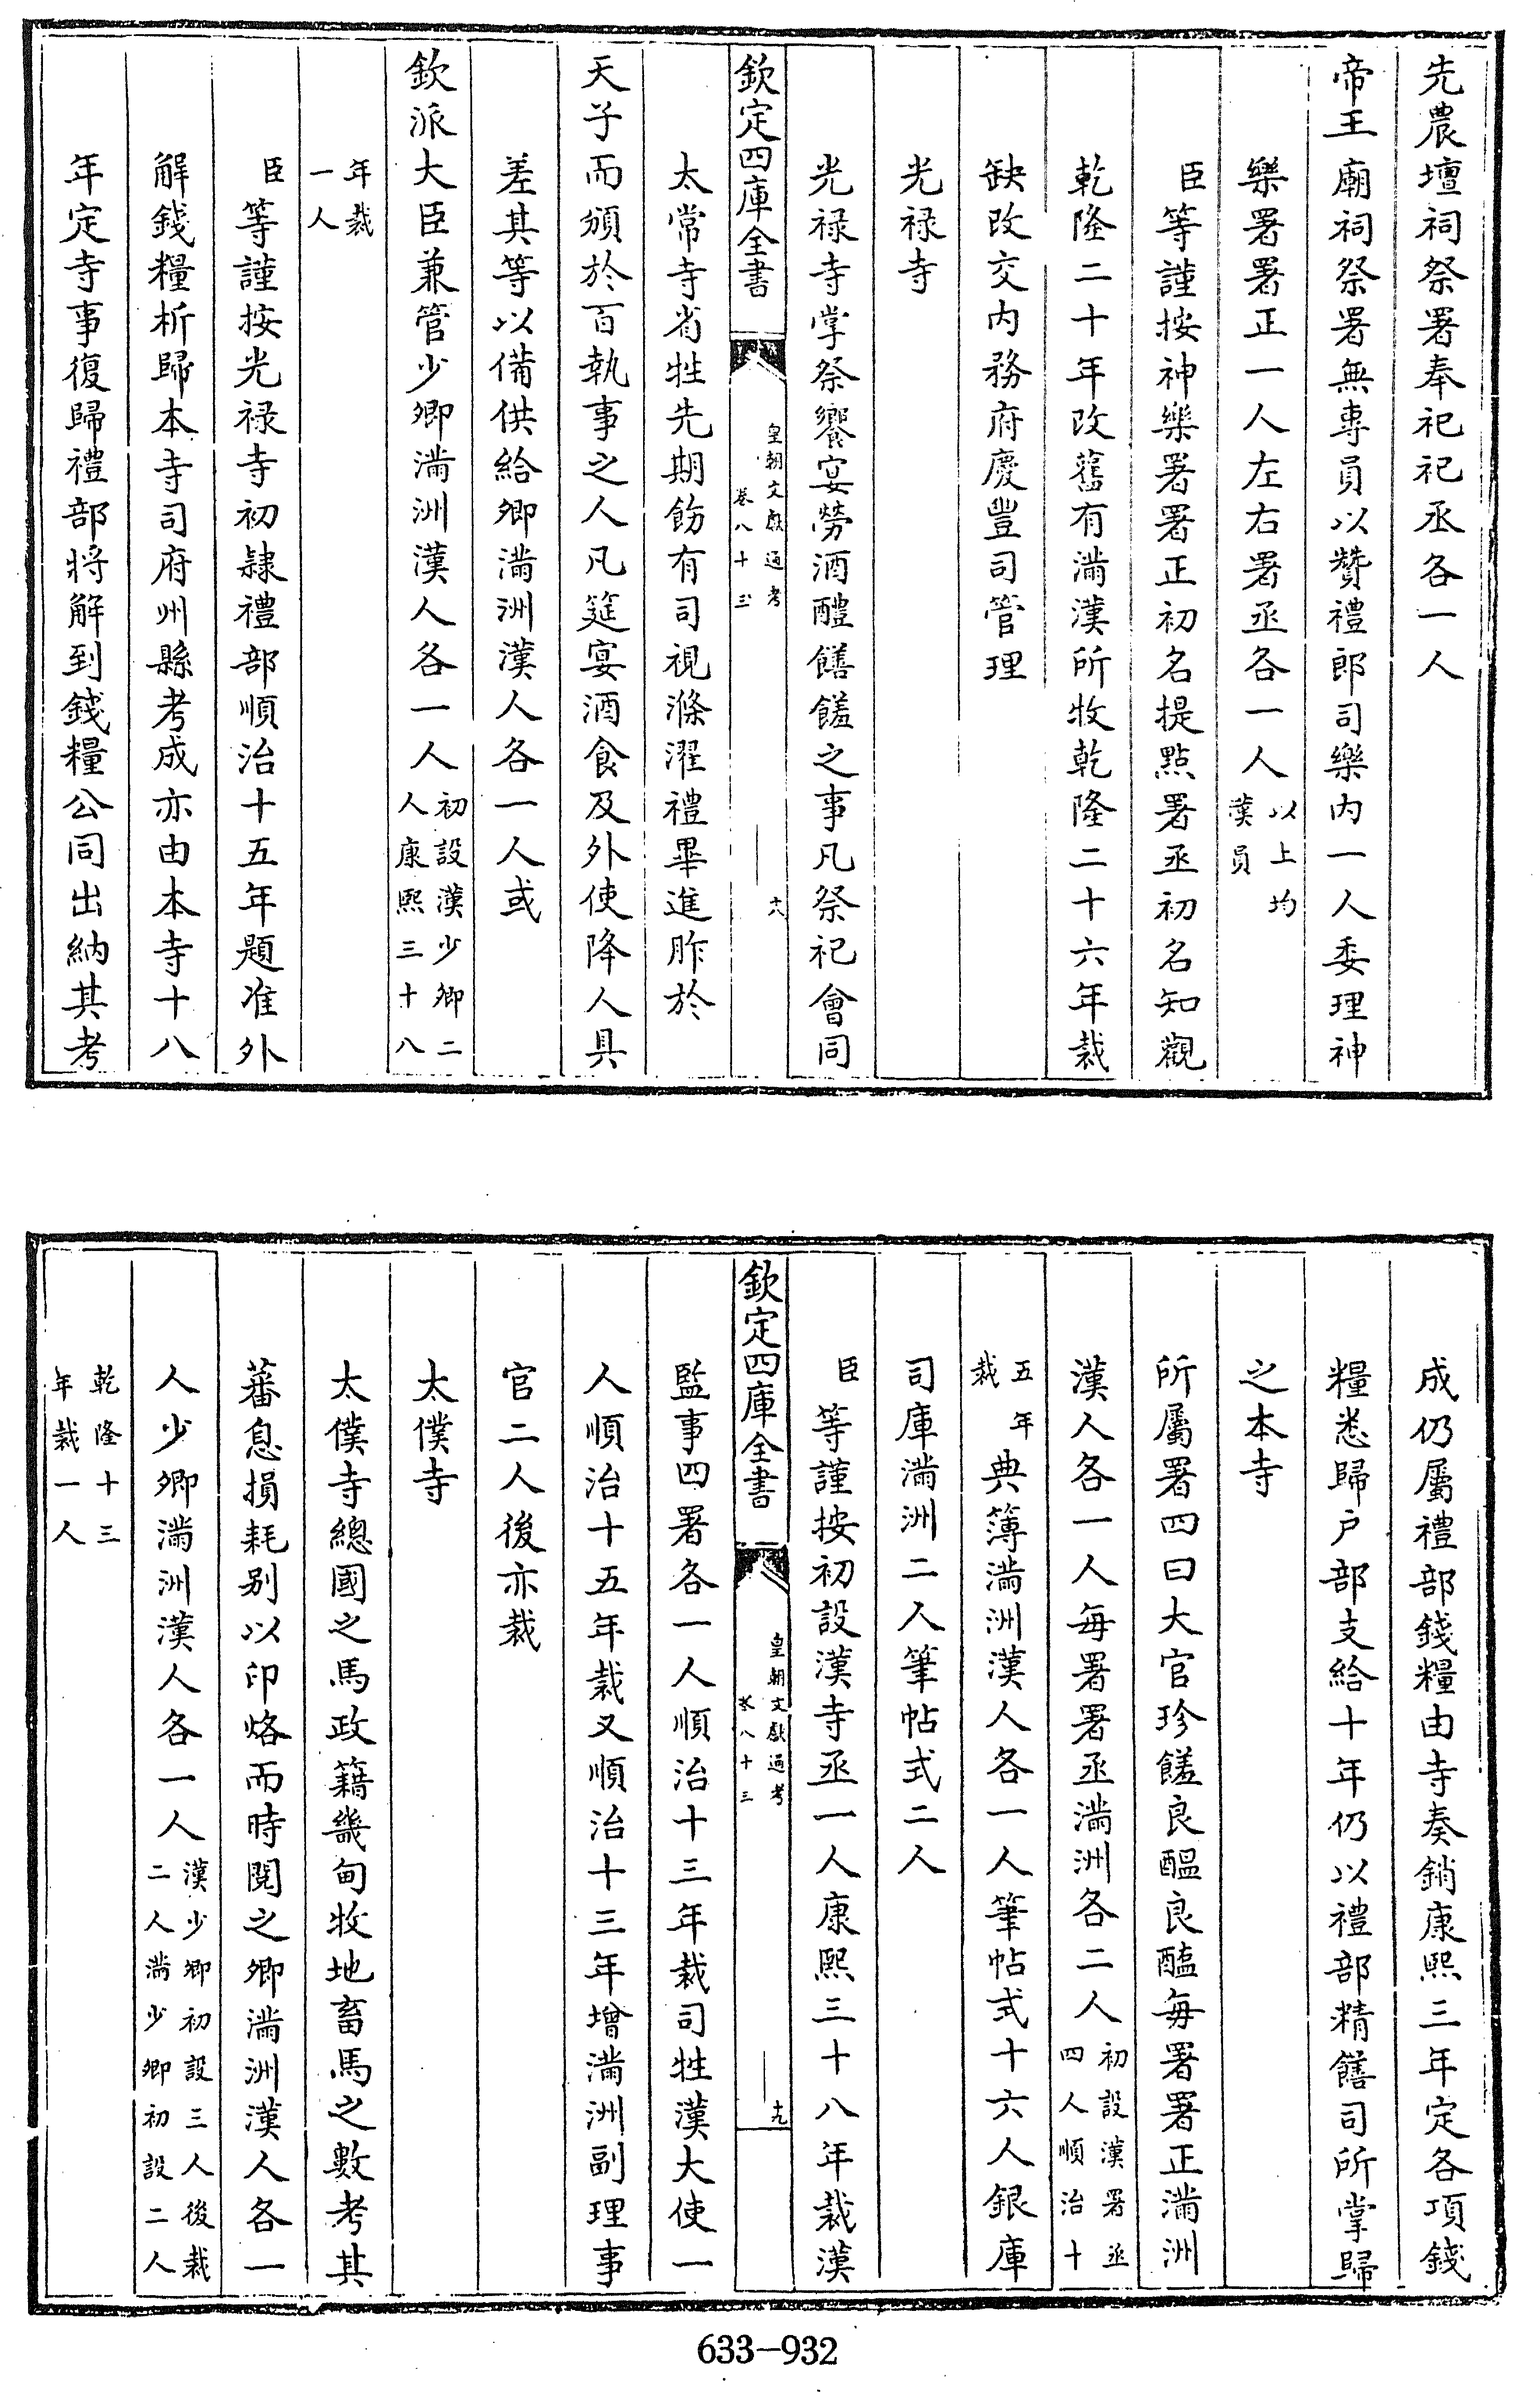 先農壇祠祭署奉祀祀丞各一人
帝王廟祠祭署無專員以贊禮郎司樂內一人委理神
樂署署正一人左右署丞各一人以上均漢員
臣等謹按神樂署署正初名提點署丞初名知觀
乾隆二十年改舊有滿漢所牧乾隆二十六年裁
缺改交內務府慶豐司管理
光禄寺
光禄寺掌祭饗宴勞酒醴饍饈之事凡祭祀會同
欽定四庫全書
皇朝文獻通考
卷八十三
十八
太常寺省牲先期飭有司視滌濯禮畢進胙於
天子而頒於百執事之人凡筵宴酒食及外使降人具
差其等以備供給卿滿洲漢人各一人或
欽派大臣兼管少卿滿洲漢人各一人初設漢少卿二
人康熙三十八
年裁
一人
臣等謹按光禄寺初隸禮部順治十五年題准外
解錢糧析歸本寺司府州縣考成亦由本寺十八
年定寺事復歸禮部將解到錢糧公同出納其考
成仍屬禮部錢糧由寺奏銷康熙三年定各項錢
糧悉歸户部支給十年仍以禮部精饍司所掌歸
之本寺
所屬署四曰大官珍饈良醞良醢每署署正滿洲
漢人各一人每署署丞滿洲各二人初設漢署丞
四人順治十
五年
裁典簿滿洲漢人各一人筆帖式十六人銀庫
司庫滿洲二人筆帖式二人
臣等謹按初設漢寺丞一人康熙三十八年裁漢
欽定四庫全書
皇朝文獻通考
卷八十三
十九
監事四署各一人順治十三年裁司牲漢大使一
人順治十五年裁又順治十三年增滿洲副理事
官二人後亦裁
太僕寺
太僕寺總國之馬政籍畿甸牧地畜馬之數考其
蕃息損耗别以印烙而時閱之卿滿洲漢人各一
人少卿滿洲漢人各一人漢少卿初設三人後裁
二人滿少卿初設二人
乾隆十三
年裁一人
633-932